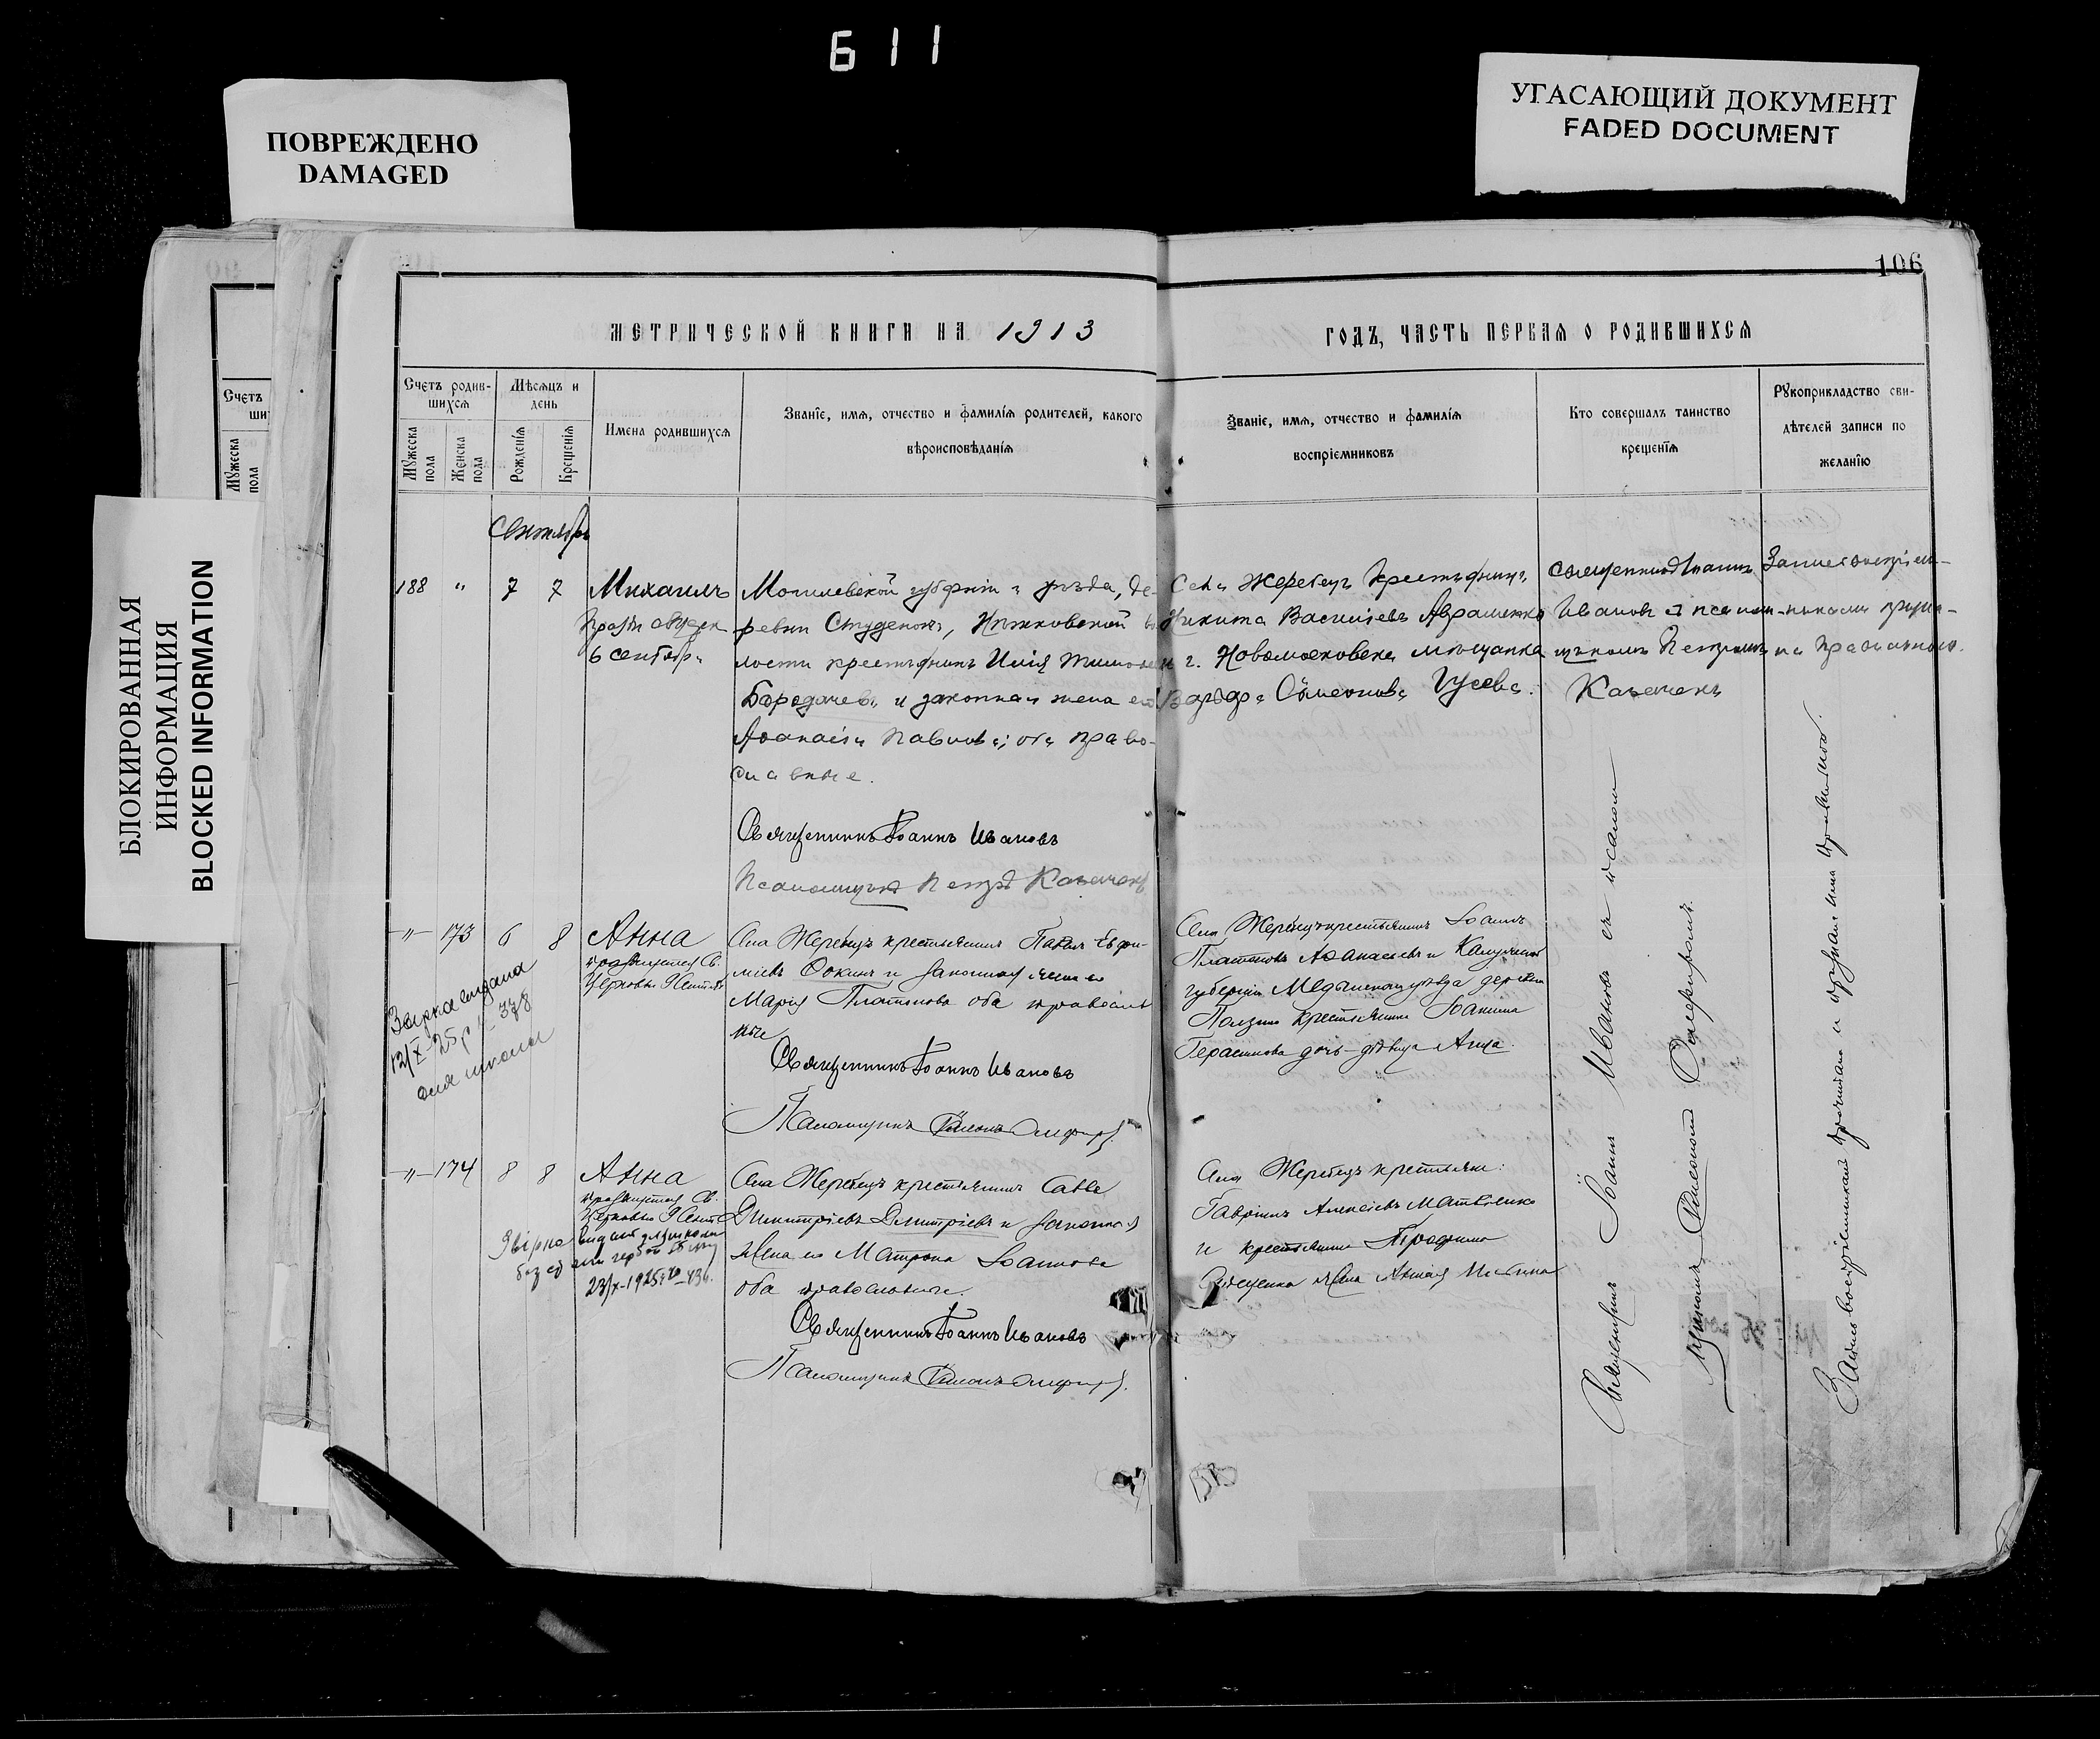 611
ПОВРЕЖДЕНО
DAMAGED
УГАСАЮЩИЙ ДОКУМЕНТ
FADED DOCUMENT
БЛОКИРОВАННАЯ
ИНФОРМАЦИЯ
BLOCKED INFORMATION
106
МЕТРИЧЕСКОЙ КНИГИ НА 1913
ГОДЪ, ЧАСТЬ ПЕРВАЯ О РОДИВШИХСЯ
Счетъ родив-
шихся
Мужеска
пола
Женска
пола
Мѣсяцъ и
день
Рожденія
Крещенія
Имена родившихся
Званіе, имя, отчество и фамилія родителей, какого
вѣроисповѣданія
Званіе, имя, отчество и фамилія
воспріемниковъ
Кто совершалъ таинство
крещенія
Рукоприкладство сви-
дѣтелей записи по
желанію
Счетъ
ши
Мужеска
пола
Сентябрь
188 " 7 7
Михаилъ
6 сентябр.
Могилевской губерніи и уѣзда, де-
ревни Студенокъ, Нѣжковской во
лости крестьянинъ Илія Тимоѳеев
Бородачевъ и законная жена его
Аѳанасія Павлова; оба право-
славные.
Священникъ Іоаннъ Ивановъ
Псаломщикъ Петръ Казачекъ
Села Жеребецъ крестьянинъ
Никита Васильевъ Авраменко
и г. Новомосковска мѣщанка
Варвара Сѵмеонова Гусева.
Священникъ Іоаннъ
Ивановъ съ псалом-
щикомъ Петромъ
Казачекъ
Запись воспріем-
никами прочи-
" 173 6 8
Анна
Церковью 9 Сент.
Звірка видана
12/X-25 р. 378
для школы
Села Жеребецъ крестьянинъ Павелъ Евфи-
міевъ Ѳокинъ и законная жена его
Марія Платонова оба православ
ные
Священникъ Іоаннъ Ивановъ
Псаломщикъ
Села Жеребецъ крестьянинъ Іоаннъ
Платоновъ Аѳанасьевъ и Калужской
губерніи Медынскаго уѣзда деревни
крестьянина Іоанна
Герасимова дочь-дѣвица Анна.
" 174 8 8
Анна
Церковью 9 Сент.
Звірка видана для школи
23/X-1925 г.
Села Жеребецъ крестьянинъ Савва
Димитріевъ Димитріевъ и законная
жена его Матрона Іоаннова
оба православные.
Священникъ Іоаннъ Ивановъ
Псаломщикъ
Села Жеребецъ крестьяне:
Гавріилъ Алексіевъ Матвіенко
и крестьянина Трофима
жена Анна
Священникъ Іоаннъ Ивановъ съ псалом
щикомъ
Запись воспріемниками прочитана и признана правильной.